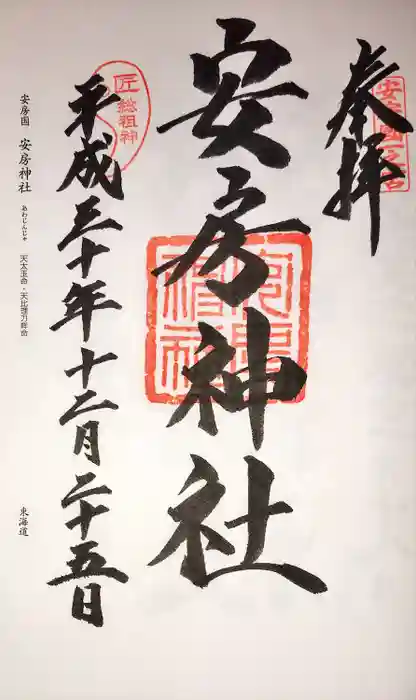 奉拝
安房國一之宮
安房神社
匠総祖神
平成三十年十二月二十五日
安房国 安房神社 あわじんじゃ 天太玉命・天比理刀咩命 東海道